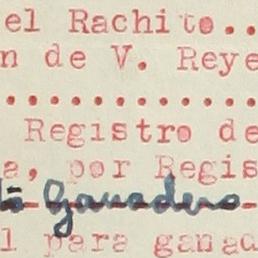 el Rachito..
n de V. Reye
............
Registro de
a, por Regis
Ganadero
l para ganad